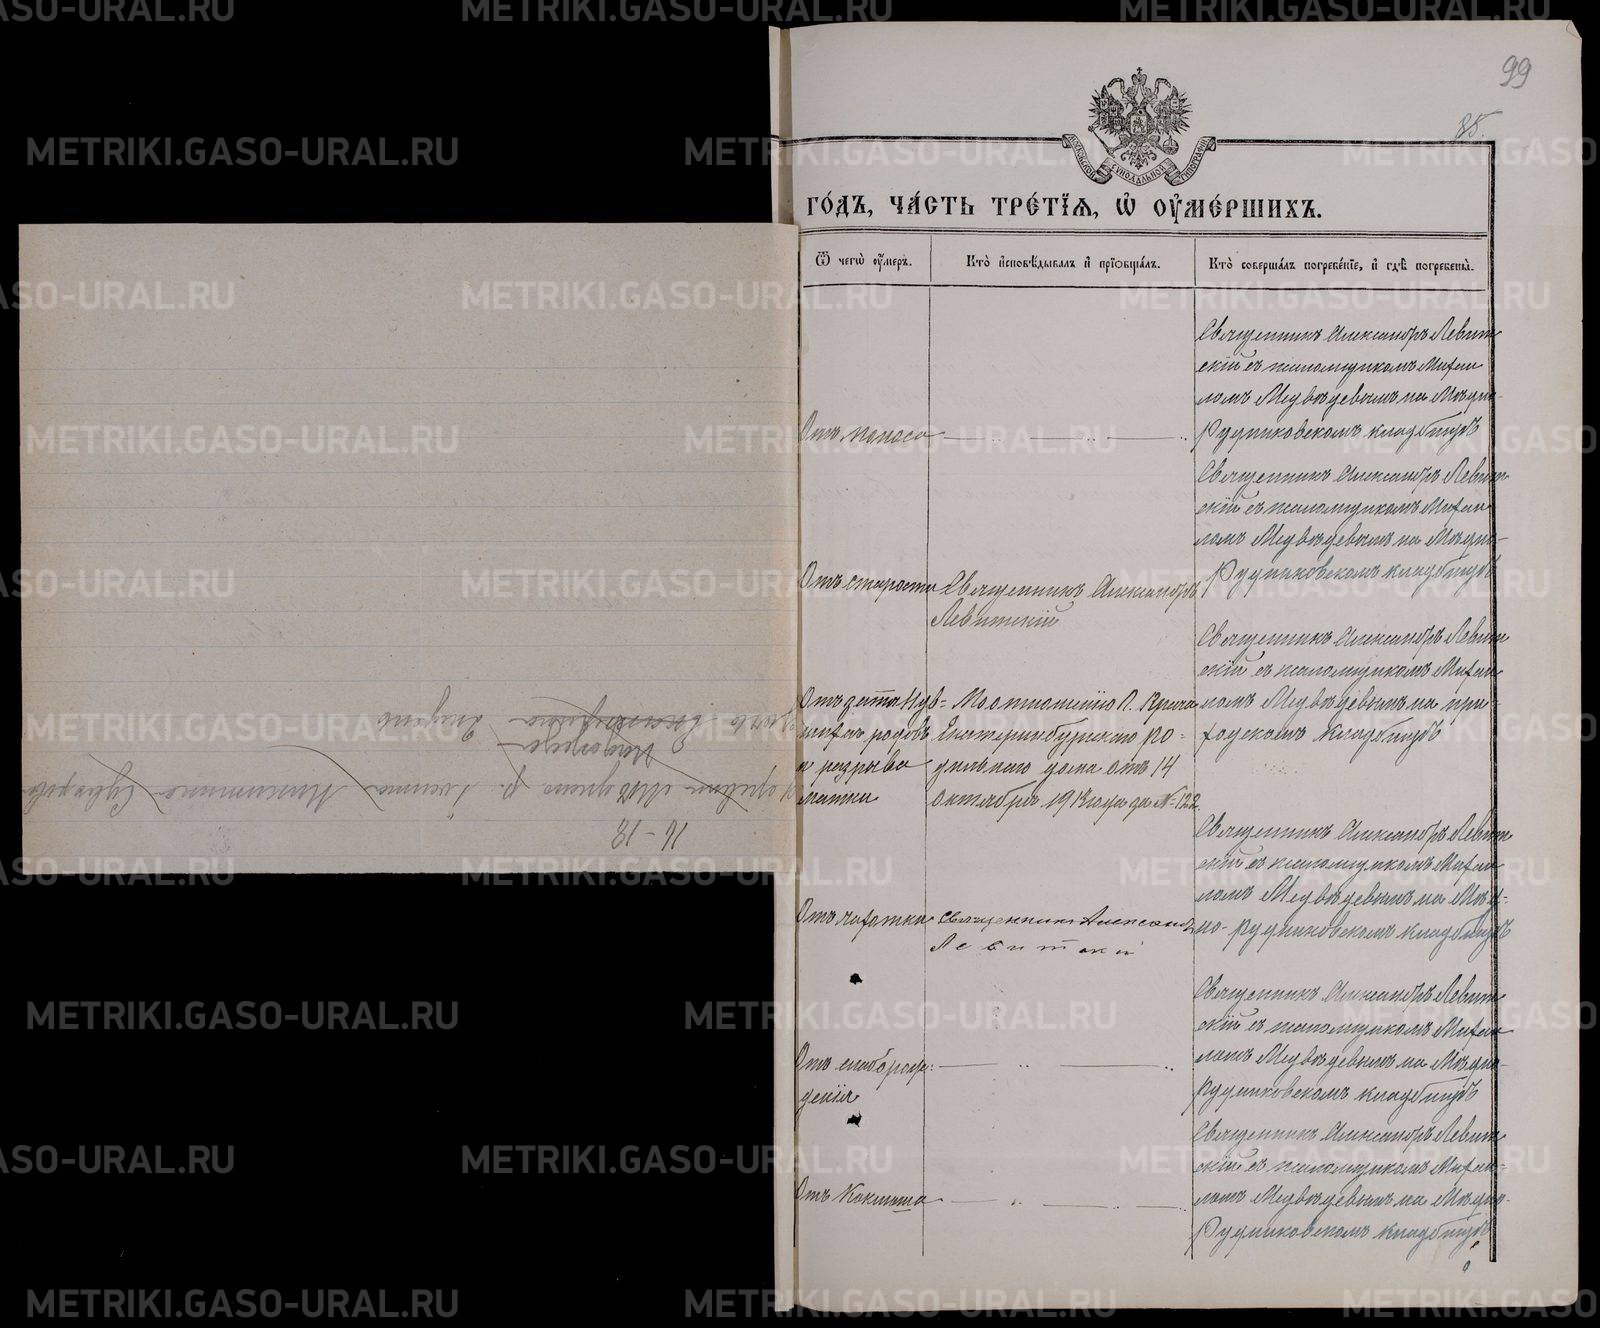 99
85.
МОСКОВСКОЙ СѴНОДАЛЬНОЙ ТИПОГРАФІИ
ГО́ДЪ, ЧА́СТЬ ТРЕ́ТІѦ, Ѡ ОУ҆МЕ́РШИХЪ.
Ѿ чегѡ̀ оу҆́меръ.
Кто̀ и҆сповѣ́дывалъ и҆ прїѡбща́лъ.
Кто̀ соверша́лъ погребе́нїе, и҆ гдѣ̀ погребены̀.
Отъ поноса
Священникъ Александръ Левит-
скій съ псаломщикомъ Михаи
ломъ Медвѣдевымъ на Мѣдно-
Рудниковскомъ кладбищѣ
Отъ старости
Священникъ Александръ
Левитскій
Священникъ Александръ Левит-
скій съ псаломщикомъ Михаи
ломъ Медвѣдевымъ на Мѣдно-
Рудниковскомъ кладбищѣ
родовъ
и разрыва
матки
По отношенію
Екатеринбургскаго ро-
дильнаго дома отъ 14
октября за № 122
Священникъ Александръ Левит-
скій съ псаломщикомъ Михаи
ломъ Медвѣдевымъ на при-
ходскомъ кладбищѣ
Отъ чахотки
Священникъ Александръ
Левитскій
Священникъ Александръ Левит-
скій съ псаломщикомъ Михаи
ломъ Медвѣдевымъ на Мѣд-
но-рудниковскомъ кладбищѣ
Отъ слаборож-
денія
Священникъ Александръ Левит-
скій съ псаломщикомъ Михаи
ломъ Медвѣдевымъ на Мѣдно-
рудниковскомъ кладбищѣ
Отъ Коклюша
Священникъ Александръ Левит-
скій съ псаломщикомъ Михаи-
ломъ Медвѣдевымъ на Мѣдно-
Рудниковскомъ кладбищѣ
16-18
METRIKI.GASO-URAL.RU